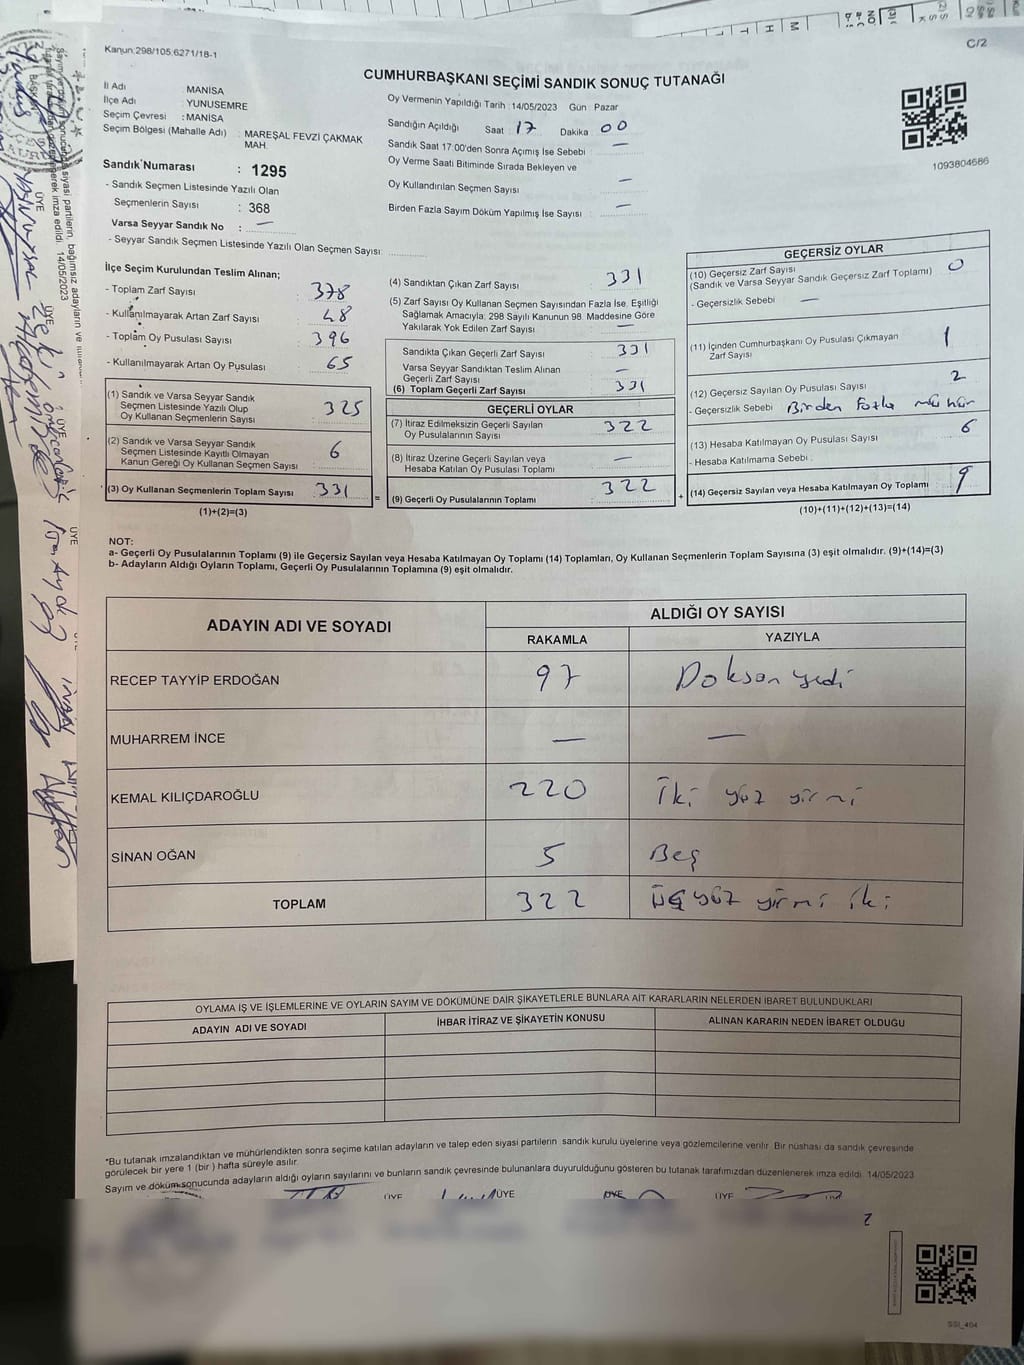 Kanun:298/105.6271/18-1
C/2
CUMHURBAŞKANI SEÇİMİ SANDIK SONUÇ TUTANAĞI
İl Adı MANİSA
İlçe Adı : YUNUSEMRE
Seçim Çevresi : MANİSA
Seçim Bölgesi (Mahalle Adı) : MAREŞAL FEVZİ ÇAKMAK
MAH.
Sandık Numarası : 1295
- Sandık Seçmen Listesinde Yazılı Olan
Seçmenlerin Sayısı : 368
Varsa Seyyar Sandık No : —
- Seyyar Sandık Seçmen Listesinde Yazılı Olan Seçmen Sayısı:
Oy Vermenin Yapıldığı Tarih :14/05/2023 Gün : Pazar
Sandığın Açıldığı Saat : 17 Dakika 00
Sandık Saat 17:00'den Sonra Açımış İse Sebebi : —
Oy Verme Saati Bitiminde Sırada Bekleyen ve
Oy Kullandırılan Seçmen Sayısı : —
Birden Fazla Sayım Döküm Yapılmış İse Sayısı : —
1093804686
İlçe Seçim Kurulundan Teslim Alınan;
- Toplam Zarf Sayısı : 378
- Kullanılmayarak Artan Zarf Sayısı : 48
- Toplam Oy Pusulası Sayısı : 396
- Kullanılmayarak Artan Oy Pusulası : 65
(1) Sandık ve Varsa Seyyar Sandık
Seçmen Listesinde Yazılı Olup
Oy Kullanan Seçmenlerin Sayısı : 325
(2) Sandık ve Varsa Seyyar Sandık
Seçmen Listesinde Kayıtlı Olmayan
Kanun Gereği Oy Kullanan Seçmen Sayısı : 6
(3) Oy Kullanan Seçmenlerin Toplam Sayısı : 331
(1)+(2)=(3)
(4) Sandıktan Çıkan Zarf Sayısı : 331
(5) Zarf Sayısı Oy Kullanan Seçmen Sayısından Fazla İse, Eşitliği
Sağlamak Amacıyla; 298 Sayılı Kanunun 98. Maddesine Göre
Yakılarak Yok Edilen Zarf Sayısı : —
Sandıkta Çıkan Geçerli Zarf Sayısı : 331
Varsa Seyyar Sandıktan Teslim Alınan
Geçerli Zarf Sayısı : —
(6) Toplam Geçerli Zarf Sayısı : 331
GEÇERLİ OYLAR
(7) İtiraz Edilmeksizin Geçerli Sayılan
Oy Pusulalarının Sayısı : 322
(8) İtiraz Üzerine Geçerli Sayılan veya
Hesaba Katılan Oy Pusulası Toplamı : —
= (9) Geçerli Oy Pusulalarının Toplamı : 322
GEÇERSİZ OYLAR
(10) Geçersiz Zarf Sayısı : 0
(Sandık ve Varsa Seyyar Sandık Geçersiz Zarf Toplamı)
- Geçersizlik Sebebi : —
(11) İçinden Cumhurbaşkanı Oy Pusulası Çıkmayan
Zarf Sayısı : 1
(12) Geçersiz Sayılan Oy Pusulası Sayısı : 2
- Geçersizlik Sebebi : Birden fazla mühür
(13) Hesaba Katılmayan Oy Pusulası Sayısı : 6
- Hesaba Katılmama Sebebi :
+ (14) Geçersiz Sayılan veya Hesaba Katılmayan Oy Toplamı : 9
(10)+(11)+(12)+(13)=(14)
NOT:
a- Geçerli Oy Pusulalarının Toplamı (9) ile Geçersiz Sayılan veya Hesaba Katılmayan Oy Toplamı (14) Toplamları, Oy Kullanan Seçmenlerin Toplam Sayısına (3) eşit olmalıdır. (9)+(14)=(3)
b- Adayların Aldığı Oyların Toplamı, Geçerli Oy Pusulalarının Toplamına (9) eşit olmalıdır.
ADAYIN ADI VE SOYADI ALDIĞI OY SAYISI
RAKAMLA YAZIYLA
RECEP TAYYİP ERDOĞAN 97 Doksan yedi
MUHARREM İNCE — —
KEMAL KILIÇDAROĞLU 220 İki yüz yirmi
SİNAN OĞAN 5 Beş
TOPLAM 322 üç yüz yirmi iki
OYLAMA İŞ VE İŞLEMLERİNE VE OYLARIN SAYIM VE DÖKÜMÜNE DAİR ŞİKAYETLERLE BUNLARA AİT KARARLARIN NELERDEN İBARET BULUNDUKLARI
ADAYIN ADI VE SOYADI İHBAR İTİRAZ VE ŞİKAYETİN KONUSU ALINAN KARARIN NEDEN İBARET OLDUĞU
*Bu tutanak imzalandıktan ve mühürlendikten sonra seçime katılan adayların ve talep eden siyasi partilerin sandık kurulu üyelerine veya gözlemcilerine verilir. Bir nüshası da sandık çevresinde
görülecek bir yere 1 (bir) hafta süreyle asılır.
Sayım ve döküm sonucunda adayların aldığı oyların sayılarını ve bunların sandık çevresinde bulunanlara duyurulduğunu gösteren bu tutanak tarafımızdan düzenlenerek imza edildi. 14/05/2023
ÜYE ÜYE ÜYE ÜYE
SSI_404